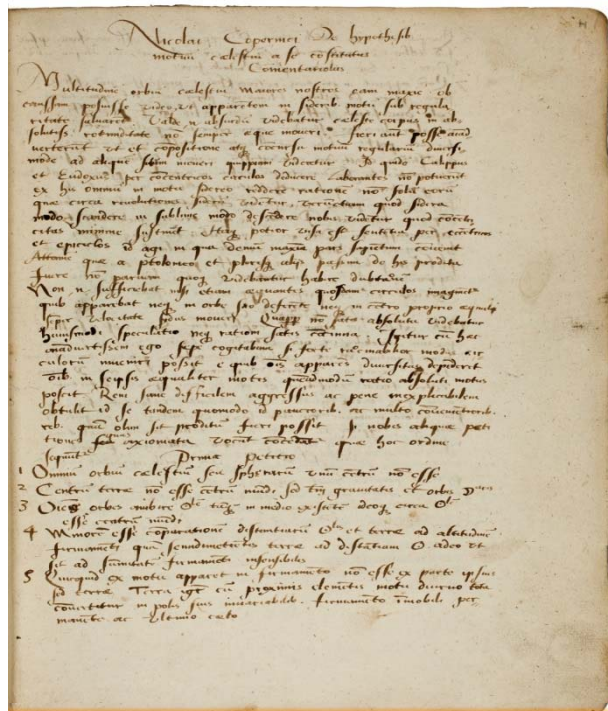 Nicolai Copernici De hypothesib.
motuū cælestiū a se cōstitutis
Comentariolus
Multitudinē orbiū cælestiū maiores nostros eam maxīe ob
caussam posuisse video, ut apparētem in siderib. motū sub regula
ritate saluarēt. Valde n. absurdū videbatur cæleste corpus in ab
solutiss. rotūditate nō semper æque moueri. fieri aūt posse aīad
verterūt ut et cōpositione atq cōcursu motuū regulariū diuersi
mode ad aliquē situm moueri quippiam videatur. Id quidē Calippus
et Eudoxus per cōcētricos circulos deducere laborantes nō potuerūt
ex his omniū in motu sidereo reddere rationē nō solū eorū
quæ circa reuolutiones siderū videtur, verūetiam quod sidera
modo scandere in sublime modo descēdere nobis vidētur quod cōcētri
citas minime sustinet. Itaq potior visa est sentētia per eccētricos
et epiciclos id agi in qua demū maxīa pars sapiētum cōuenit
Attamē quæ a ptolomeo et plerisq alijs passim de his prodita
fuere nō paruam quoq videbātur habere dubitationē
Non n. sufficiebāt nisi etiam æquantes quosdam circulos imaginarētur
quib apparebat neq in orbe suo deferēte neq in cētro proprio æquali
semper velocitate sidus moueri. Quapp. nō satis absoluta videbatur
huiusmodi speculatio neq rationi satis cōcinna. Igitur cū hæc
aīaduertissem ego sæpe cogitabam si forte
culorū inueniri possit e quib oīs apparēs diuersitas depēderet
oīb. in seipsis æqualiter motis quemadmodū ratio absoluti motus
poscit. Rem sane difficilem aggressus ac pene inexplicabilem
obtulit id se tandem quomodo id pauciorib. ac multo cōuenientiorib.
reb. quam olim sit proditū fieri possit si nobis aliquæ peti
tiones axiomata vocāt cōcedātur quæ hoc ordine
sequūtur Prima Petitio
1 Omniū orbiū cælestiū seu sphærarū vnū cētrū nō esse
2 Centrū terræ nō esse cētrū mūdi, sed tm̄ grauitatis et orbis
3 Oēs orbes ambire tāq in medio existētē ideoq circa
esse centrū mūdi
4 Minorē esse cōparationē distantiarū et terræ ad altitudinē
firmamēti quam semidimetientis terræ ad distātiam adeo ut
sit ad summitatē firmamēti insensibilis
5 Quicquid ex motu apparet in firmamēto nō esse ex parte ipsius
sed terræ. Terra igt cū proximis elemētis motu diurno tota
cōuertitur in polis suis inuariabilib. firmamēto īmobili per
manēte ac vltimo cælo